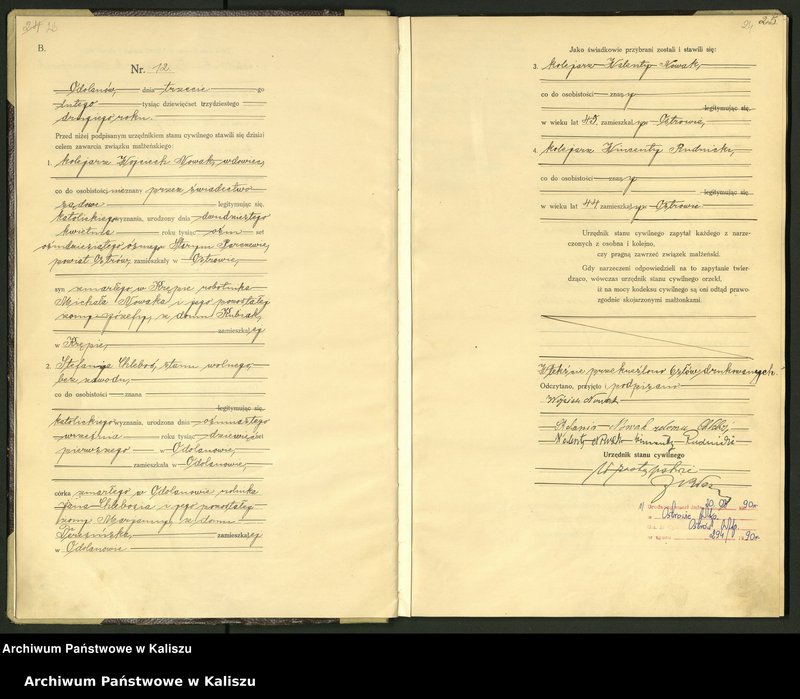 24
B.
Nr. 12
Odolanów, dnia trzecie go
lutego tysiąc dziewięćset trzydziestego
drugiego roku.
Przed niżej podpisanym urzędnikiem stanu cywilnego stawili się dzisiaj
celem zawarcia związku małżeńskiego:
1. kolejarz Wojciech Nowak, wdowiec,
co do osobistości nieznany przez świadectwo
sądowe legitymując się,
katolickiego wyznania, urodzony dnia dwudziestego
kwietnia roku tysiąc ośm set
ośmdziesiątego ósmego
powiat Ostrów, zamieszkały w Ostrowie,
syn zmarłego w Krępie robotnika
Michała Nowaka i jego pozostałej
żony Józefy, z domu Kubiak,
zamieszkałej
w Krępie,
2. Stefania Chleboś, stanu wolnego,
bez zawodu,
co do osobistości znana
legitymując się,
katolickiego wyznania, urodzona dnia ośmnastego
września roku tysiąc dziewięćset
pierwszego w Odolanowie,
zamieszkała w Odolanowie,
córka zmarłego w Odolanowie rolnika
Jana Chlebosia i jego pozostałej
żony Maryanny, z domu
zamieszkałej
w Odolanowie
25.
Jako świadkowie przybrani zostali i stawili się:
3. kolejarz Walenty Nowak,
co do osobistości znany
legitymując się,
w wieku lat 45 zamieszkały w Ostrowie,
4. kolejarz Wincenty Rudnicki,
co do osobistości znany
legitymując się,
w wieku lat 44 zamieszkały w Ostrowie
Urzędnik stanu cywilnego zapytał każdego z narze-
czonych z osobna i kolejno,
czy pragną zawrzeć związek małżeński.
Gdy narzeczeni odpowiedzieli na to zapytanie twier-
dząco, wówczas urzędnik stanu cywilnego orzekł,
iż na mocy kodeksu cywilnego są oni odtąd prawo-
zgodnie skojarzonymi małżonkami.
przekreślono słów drukowanych.
Odczytano, przyjęto i podpisano
Wojciech Nowak
Stefania Nowak z domu Chleboś,
Walenty Nowak Wincenty Rudnicki
Urzędnik stanu cywilnego
W zastępstwie
90 r.
Ostrowie Wlkp.
Ostrów Wlkp.
294 90 r.
Archiwum Państwowe w Kaliszu
Archiwum Państwowe w Kaliszu